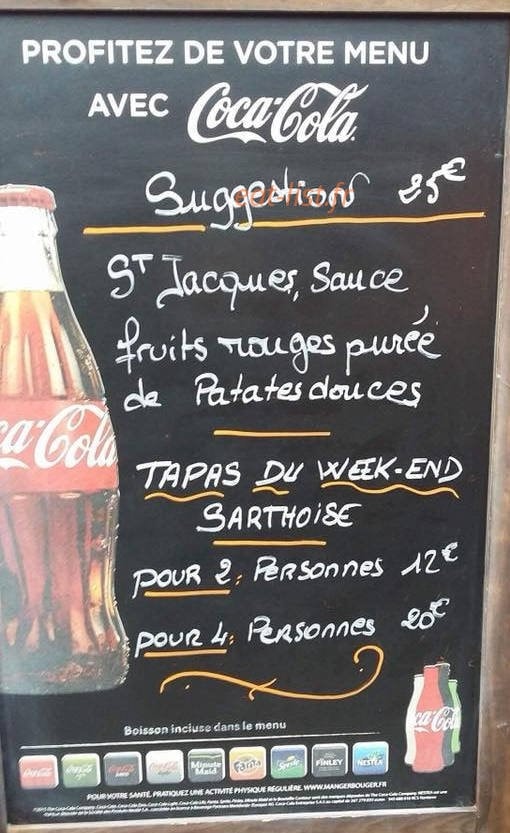 PROFITEZ DE VOTRE MENU
AVEC Coca-Cola
Suggestion 25€
ST Jacques, Sauce
fruits rouges purée
de Patates douces
ca-Cola
TAPAS DU WEEK-END
SARTHOISE
POUR 2: PERSONNES 12€
POUR 4: PERSONNES 20€
ca-Col
Boisson incluse dans le menu
Coca-Cola Minute Maid Fanta Sprite FINLEY NESTEA
POUR VOTRE SANTÉ, PRATIQUEZ UNE ACTIVITÉ PHYSIQUE RÉGULIÈRE. WWW.MANGERBOUGER.FR